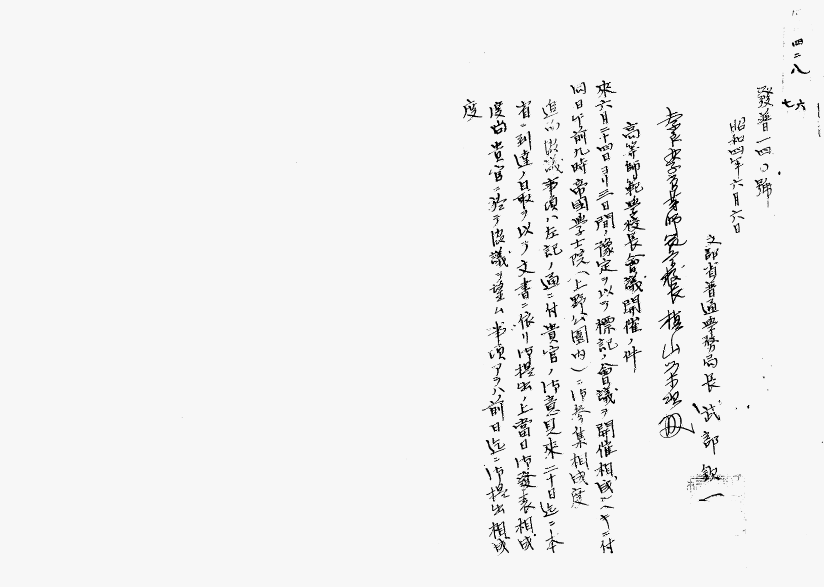 四二八
六
七
發普一四〇號
昭和四年六月六日
文部省普通學務局長 武部欽一
校長
高等師範學校長會議開催ノ件
來六月二十四日ヨリ三日間ノ豫定ヲ以テ標記ノ會議ヲ開催相成ヘキニ付
同日午前九時帝國學士院(上野公園内)ニ御參集相成度
追而協議事項ハ左記ノ通ニ付貴官ノ御意見來二十日迄ニ本
省ニ到達ノ日取ヲ以テ文書ニ依リ御提出ノ上當日御發表相成
度尚貴官ニ於テ協議ヲ望ム事項アラハ前日迄ニ御提出相成
度